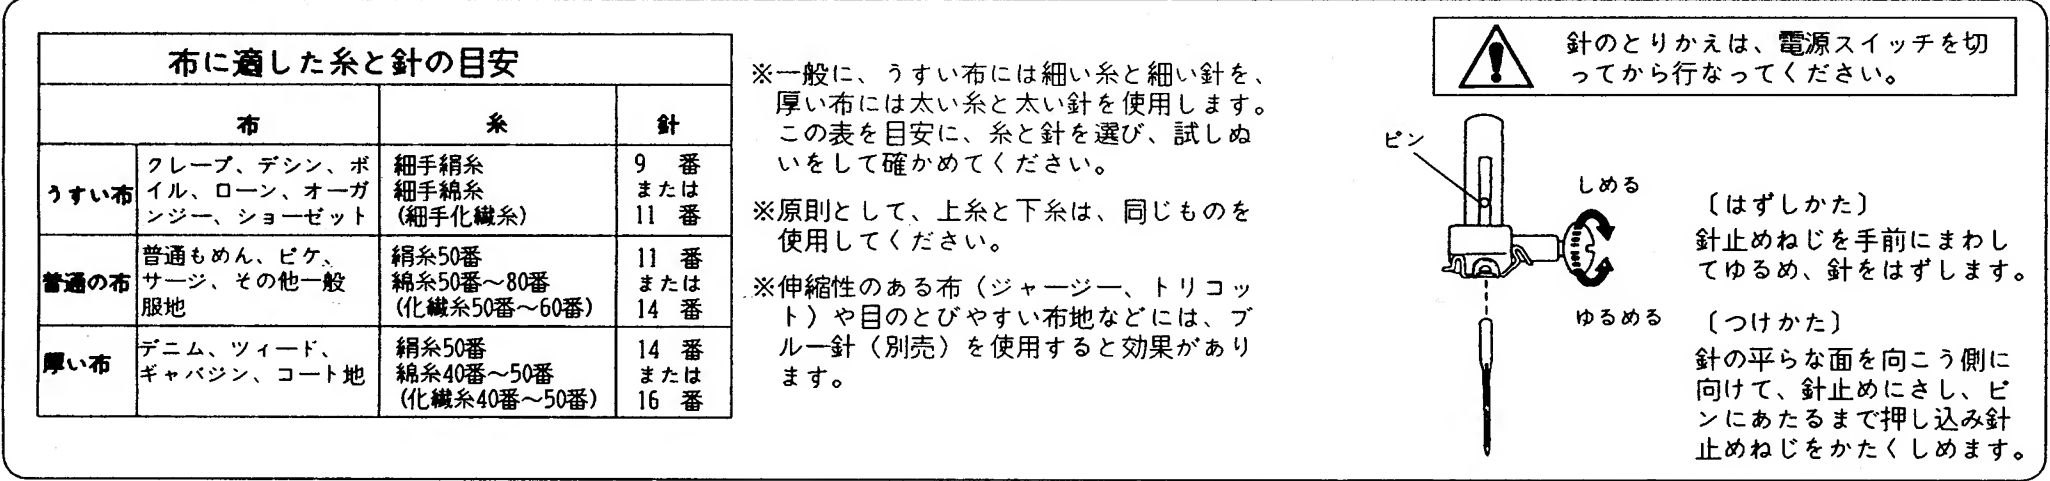 布に適した糸と針の目安
布 糸 針
うすい布
クレープ、デシン、ボ
イル、ローン、オーガ
ンジー、ショーゼット
細手絹糸
細手綿糸
(細手化繊糸)
9 番
または
11 番
普通の布
普通もめん、ピケ、
サージ、その他一般
服地
絹糸50番
綿糸50番～80番
(化繊糸50番～60番)
11 番
または
14 番
厚い布
デニム、ツィード、
ギャバジン、コート地
絹糸50番
綿糸40番～50番
(化繊糸40番～50番)
14 番
または
16 番
※一般に、うすい布には細い糸と細い針を、
厚い布には太い糸と太い針を使用します。
この表を目安に、糸と針を選び、試しぬ
いをして確かめてください。
※原則として、上糸と下糸は、同じものを
使用してください。
※伸縮性のある布（ジャージー、トリコッ
ト）や目のとびやすい布地などには、ブ
ルー針（別売）を使用すると効果があり
ます。
針のとりかえは、電源スイッチを切
ってから行なってください。
ピン
しめる
ゆるめる
〔はずしかた〕
針止めねじを手前にまわし
てゆるめ、針をはずします。
〔つけかた〕
針の平らな面を向こう側に
向けて、針止めにさし、ピ
ンにあたるまで押し込み針
止めねじをかたくしめます。